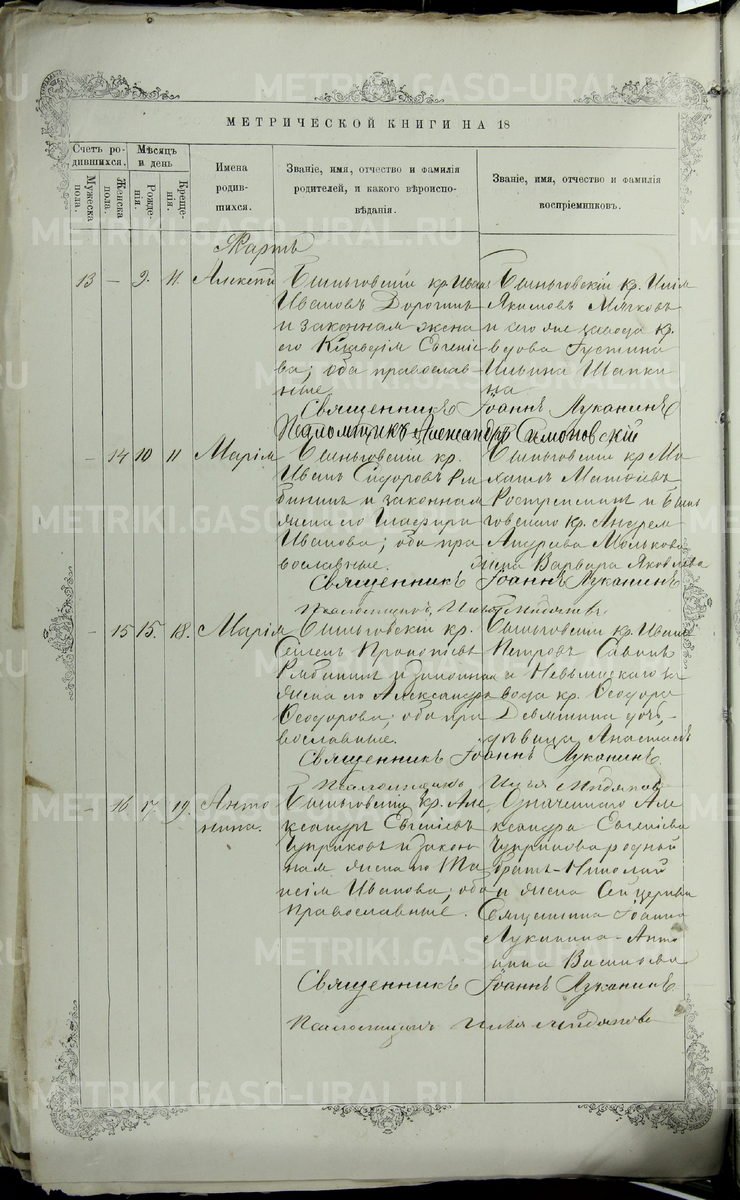 METRIKI.GASO-URAL.RU
МЕТРИЧЕСКОЙ КНИГИ НА 18
Счетъ ро-
дившихся.
Мѣсяцъ
и день
Мужеска
пола.
Женска
пола.
Рожде-
нія.
Креще-
нія.
Имена
родив-
шихся.
Званіе, имя, отчество и фамилія
родителей, и какого вѣроиспо-
вѣданія.
Званіе, имя, отчество и фамилія
воспріемниковъ.
Мартъ
13 — 9. 11. Алексѣй
Быньговскій кр. Иванъ
Ивановъ
и законная жена
его Клавдія Евгеніе
ва; оба православ-
ные.
Быньговскій кр. Илія
Якимовъ Мягковъ
и того же завода кр.
вдова Густина
Ильина Шапки
на
Священникъ Іоаннъ Луканинъ
Псаломщикъ Александръ Симоновскій
— 14 10 11 Марія
Быньговскій кр.
Иванъ Сидоровъ Ря
бининъ и законная
жена его Глафира
Иванова; оба пра
вославные.
Быньговскій кр. Ми
хаилъ
и Бынь
говскаго кр. Андрея
жена Варвара Яковлева
Священникъ Іоаннъ Луканинъ
Псаломщикъ Илья
— 15 15. 18. Марія
Быньговскій кр.
Семенъ Прокопьевъ
Рябининъ и законная
жена его Александра
Ѳеодорова; оба пра
вославные.
Быньговскій кр. Иванъ
Петровъ
и Невьянскаго за
вода кр. Ѳеодора
Девяшина дочь,
дѣвица Анастасія
Священникъ Іоаннъ Луканинъ
Псаломщикъ Илья
— 16 17. 19. Анто
нина.
Быньговскій кр. Але
ксандръ Евгеніевъ
Чуприковъ и закон
ная жена его Та
исія Иванова; оба
православные.
Означеннаго Але
ксандра Евгеніева
Чуприкова родный
братъ Николай
и жена сей церкви
Священника Іоанна
Луканина Анто
нина Васильева
Священникъ Іоаннъ Луканинъ
Псаломщикъ Илья